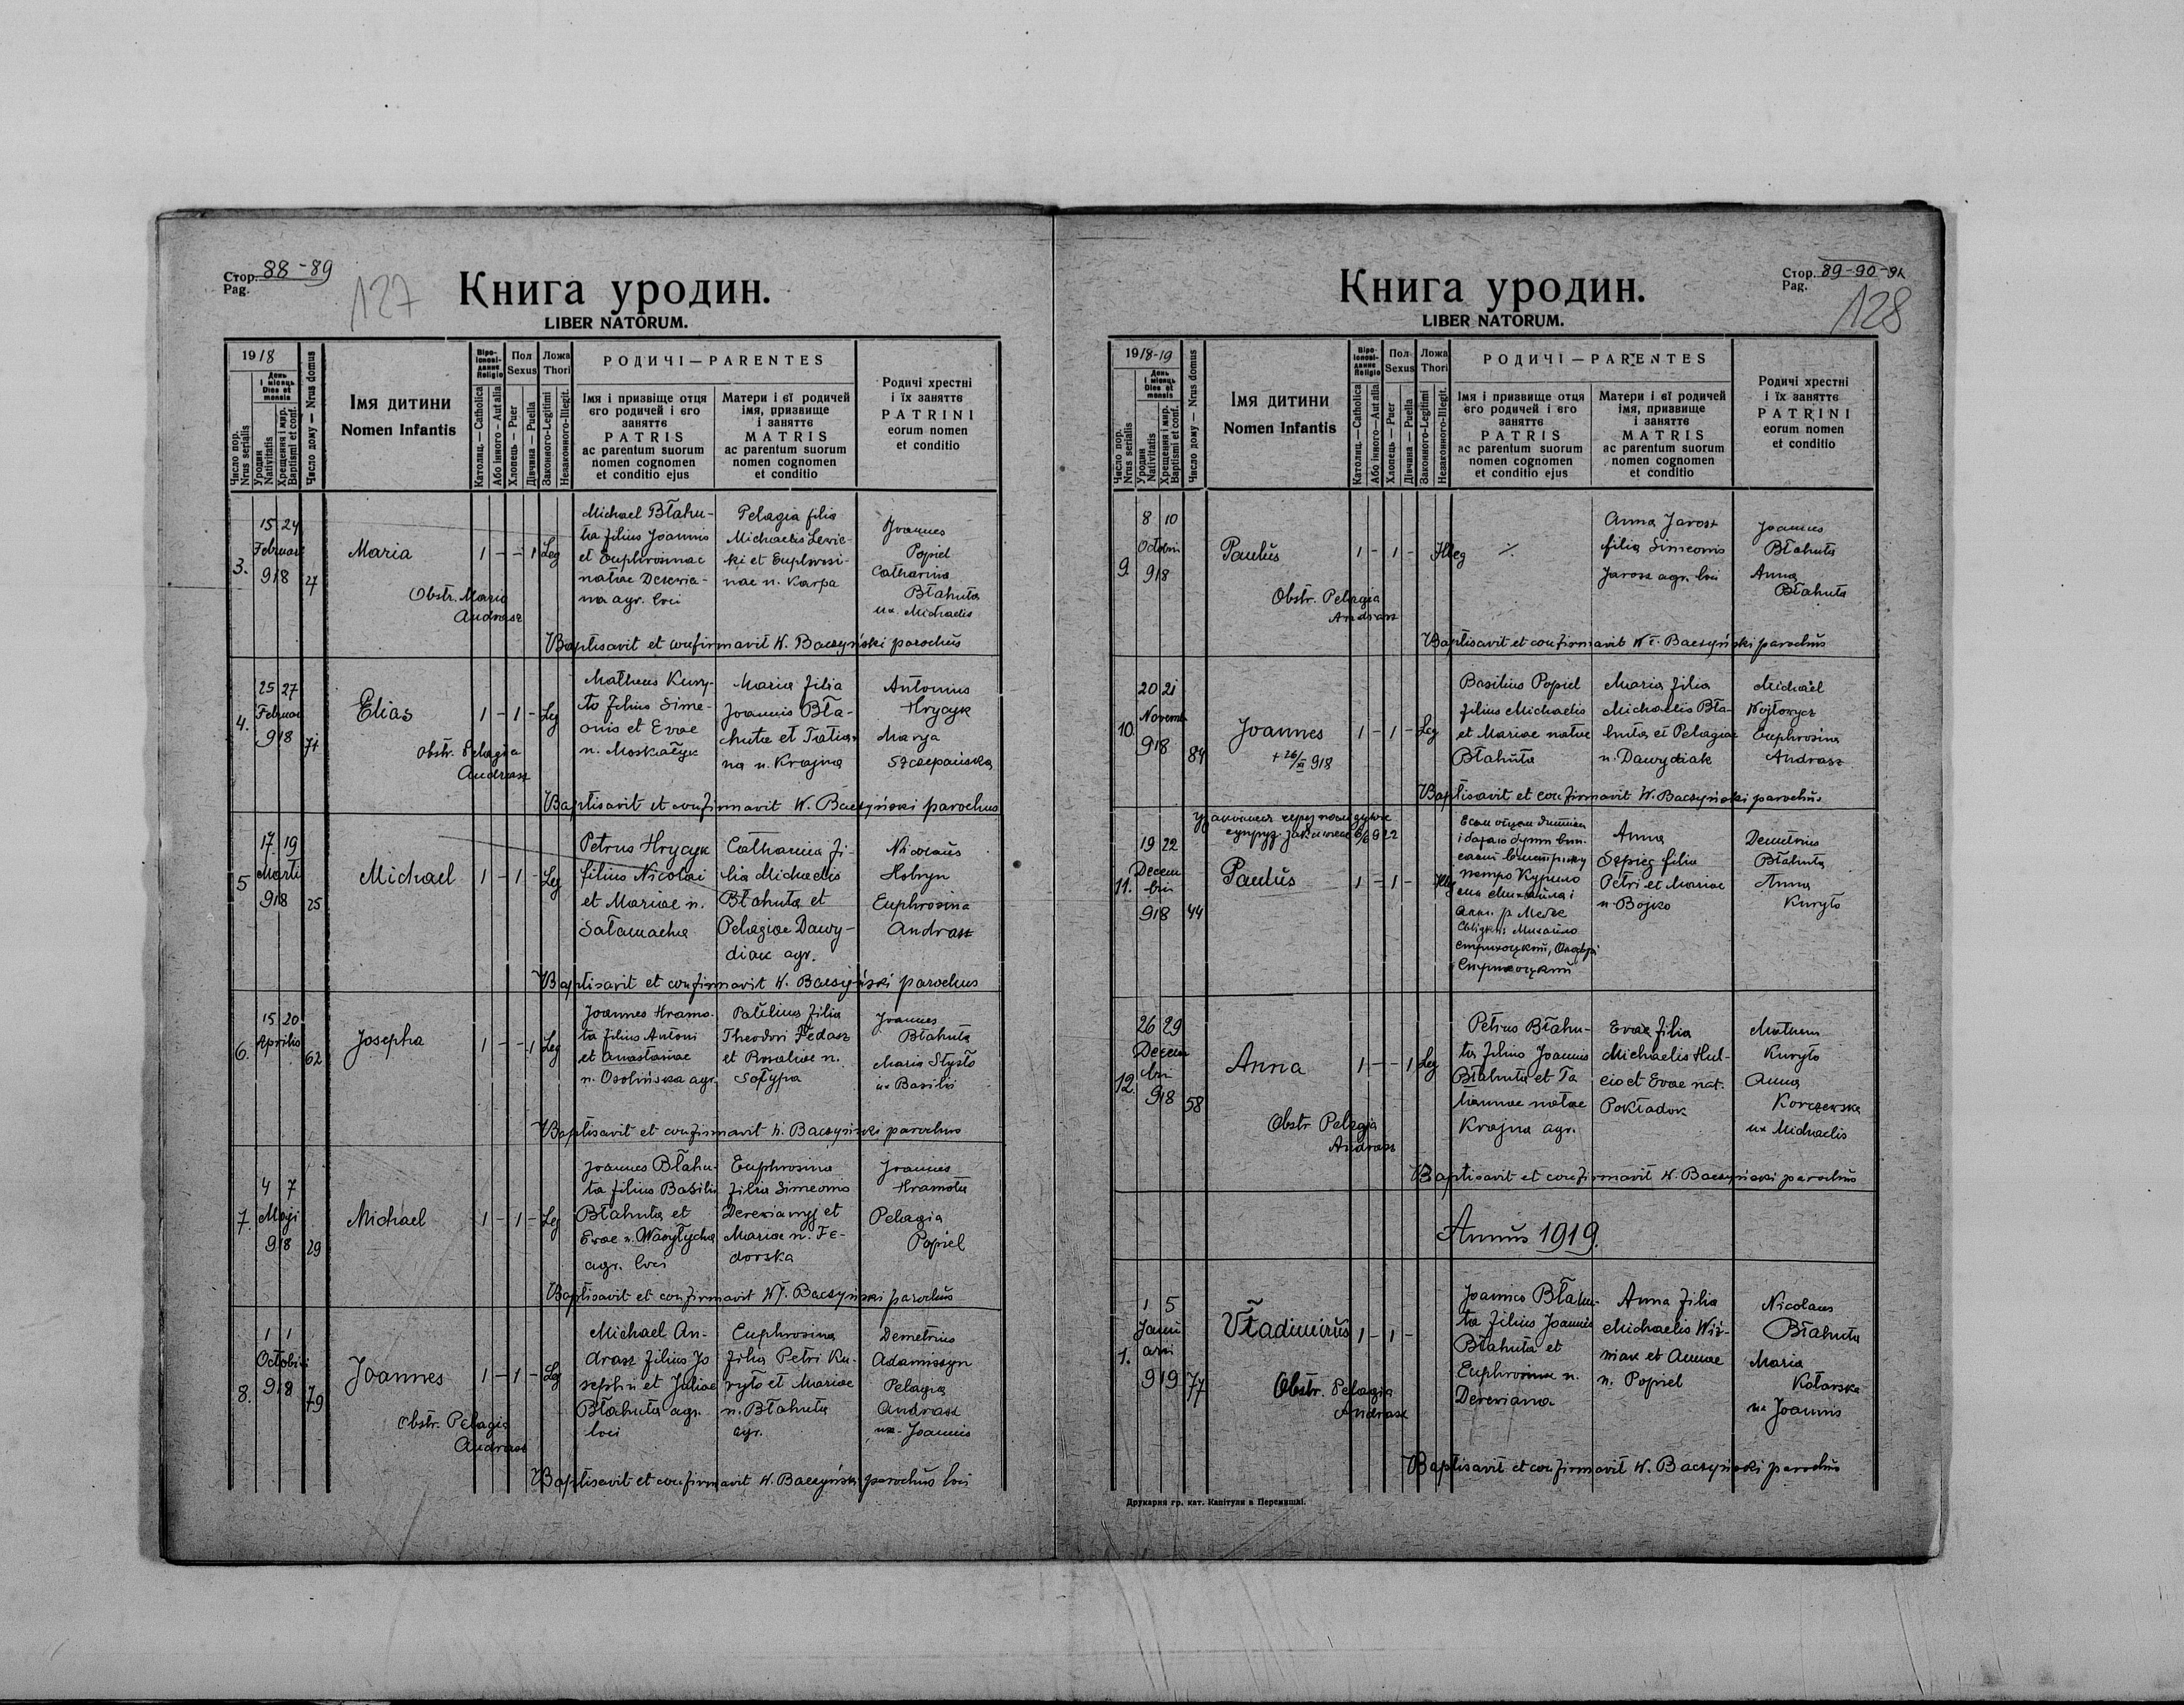 Стор. 88-89
Pag.
127
Книга уродин.
LIBER NATORUM.
1918
Число пор.
Nrus serialis
День
і місяць
Dies et
mensis
Уродин
Nativitatis
Хрещення і мир.
Baptismi et conf.
Число дому — Nrus domus
Імя дитини
Nomen Infantis
Віро-
ісповідання
Religio
Католиц. — Catholica
Або іного — Aut alia
Пол
Sexus
Хлопець — Puer
Дівчина — Puella
Ложа
Thori
Законного-Legitimi
Незаконного-Illegit.
РОДИЧІ — PARENTES
Імя і призвіще отця
єго родичей і єго
заняттє
PATRIS
ac parentum suorum
nomen cognomen
et conditio ejus
Матери і єї родичей
імя, призвище
і заняттє
MATRIS
ac parentum suorum
nomen cognomen
et conditio
Родичі хрестні
і їх заняттє
PATRINI
eorum nomen
et conditio
3.
15 24
Februar
918
27
Maria
Obstr. Maria
Andrasz
1 - - 1 Leg
Michael Błahu-
ta filius Joannis
et Euphrosinae
natae Derewia-
na agr. loci
Pelagia filia
Michaelis Lewic-
ki et Euphrosi-
nae n. Karpa
Joannes
Popiel
Catharina
Błahuta
ux. Michaelis
Baptisavit et confirmavit W. Baczyński parochus
4.
25 27
Februar
918
71
Elias
Obstr. Pelagia
Andrasz
1 - 1 - Leg
Matheus Kury-
ło filius Sime-
onis et Evae
n. Moskałyk
Maria filia
Joannis Bła-
huta et Tatian
na n. Krajna
Antonius
Hrycyk
Marya
Szczepańska
Baptisavit et confirmavit W. Baczyński parochus
5
17 19
Marti
918
25
Michael
1 - 1 - Leg
Petrus Hrycyk
filius Nicolai
et Mariae n.
Sałamacha
Catharina fi-
lia Michaelis
Błahuta et
Pelagiae Dawy-
diak agr.
Nicolaus
Hobryn
Euphrosina
Andrasz
Baptisavit et confirmavit W. Baczyński parochus
6.
15 20
Aprilis
62
Josepha
1 - - 1 Leg
Joannes Hramo-
ta filius Antoni
et Anastasiae
n. Osolińska agr.
Paulina filia
Theodori Fedasz
et Rosaliae n.
Sołypa
Joannes
Błahuta
Maria Stysło
ux Basilii
Baptisavit et confirmavit W. Baczyński parochus
7.
4 7
Maji
918
29
Michael
1 - 1 - Leg
Joannes Błahu-
ta filius Basilii
Błahuta et
Evae n. Wasyłycha
agr. loci
Euphrosina
filia Simeonis
Derewiamyj et
Mariae n. Fe-
dorska
Joannes
Hramota
Pelagia
Popiel
Baptisavit et confirmavit Wł. Baczyński parochus
8.
1 1
Octobris
918
79
Joannes
Obstr. Pelagia
Andrasz
1 - 1 - Leg
Michael An-
drasz filius Jo
sephi et Juliae
Błahuta agr.
loci
Euphrosina
filia Petri Ku-
ryło et Mariae
n. Błahuta
agr.
Demetrius
Adamiszyn
Pelagia
Andrasz
ux. Joannis
Baptisavit et confirmavit W. Baczyński parochus loci
Стор. 89-90-91
Pag.
128
Книга уродин.
LIBER NATORUM.
1918-19
Число пор.
Nrus serialis
День
і місяць
Dies et
mensis
Уродин
Nativitatis
Хрещення і мир.
Baptismi et conf.
Число дому — Nrus domus
Імя дитини
Nomen Infantis
Віро-
ісповідання
Religio
Католиц. — Catholica
Або іного — Aut alia
Пол
Sexus
Хлопець — Puer
Дівчина — Puella
Ложа
Thori
Законного-Legitimi
Незаконного-Illegit.
РОДИЧІ — PARENTES
Імя і призвище отця
єго родичей і єго
заняттє
PATRIS
ac parentum suorum
nomen cognomen
et conditio ejus
Матери і єї родичей
імя, призвище
і заняттє
MATRIS
ac parentum suorum
nomen cognomen
et conditio
Родичі хрестні
і їх заняттє
PATRINI
eorum nomen
et conditio
9.
8 10
Octobri
918
Paulus
Obstr. Pelagia
Andrasz
1 - 1 - Illeg
·/·
Anna Jarosz
filia Simeonis
Jarosz agr. loci
Joannes
Błahuta
Anna
Błahuta
Baptisavit et confirmavit Wł. Baczyński parochus
10.
20 21
Novemb
918
84
Joannes
+ 26/XI 918
1 - 1 - Leg
Basilius Popiel
filius Michaelis
et Mariae natae
Błahuta
Maria filia
Michaelis Bła-
huta et Pelagiae
n. Dawydiak
Michael
Wojtowycz
Euphrosina
Andrasz
Baptisavit et confirmavit W. Baczyński parochus
11.
19 22
Decem
bri
918
44
через
супруж
922
Paulus
1 - 1 - Illeg
Єсьм отцем дитини
і
Петро Курило
син Михайла і
Анни р.
Свідки: Михайло
Anna
filia
Petri et Mariae
n. Bojko
Demetrius
Błahuta
Anna
Kuryło
12.
26 29
Decem
bri
918
58
Anna
Obstr Pelagia
Andrasz
1 - - 1 Leg
Petrus Błahu-
ta filius Joannis
Błahuta et Ta
tiannae natae
Krajna agr.
Evae filia
Michaelis Hul-
cio et Evae nat.
Pokładok
Matheus
Kuryło
Anna
Korczewska
ux Michaelis
Baptisavit et confirmavit W. Baczyński parochus
Annus 1919.
1.
1 5
Janu
arii
919
77
Władimirus
Obstr. Pelagia
Andrasz
1 - 1 -
Joannes Błahu-
ta filius Joannis
Błahuta et
Euphrosinae n.
Derewiana
Anna filia
Michaelis Wiś-
niak et Annae
n. Popiel
Nicolaus
Błahuta
Maria
Kotarska
ux Joannis
Baptisavit et confirmavit W. Baczyński parochus
Друкарня гр. кат. Капітули в Перемишлі.